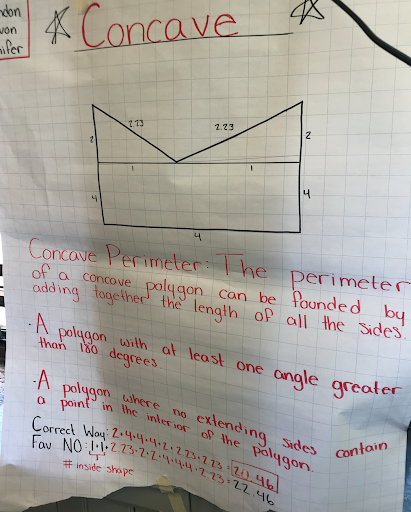 ndon
von
nifer
Concave
2.23
2.23
2
2
1
1
4
4
4
Concave Perimeter: The perimeter
of a concave polygon can be founded by
adding together the length of all the sides.
·A polygon with at least one angle greater
than 180 degrees.
·A polygon where no extending sides contain
a point in the interior of the polygon.
Correct Way: 2+4+4+4+2+2.23+2.23=20.46
Fav NO: 1+1+2.23+2+2+4+4+4+2.23=22.46
# inside shape